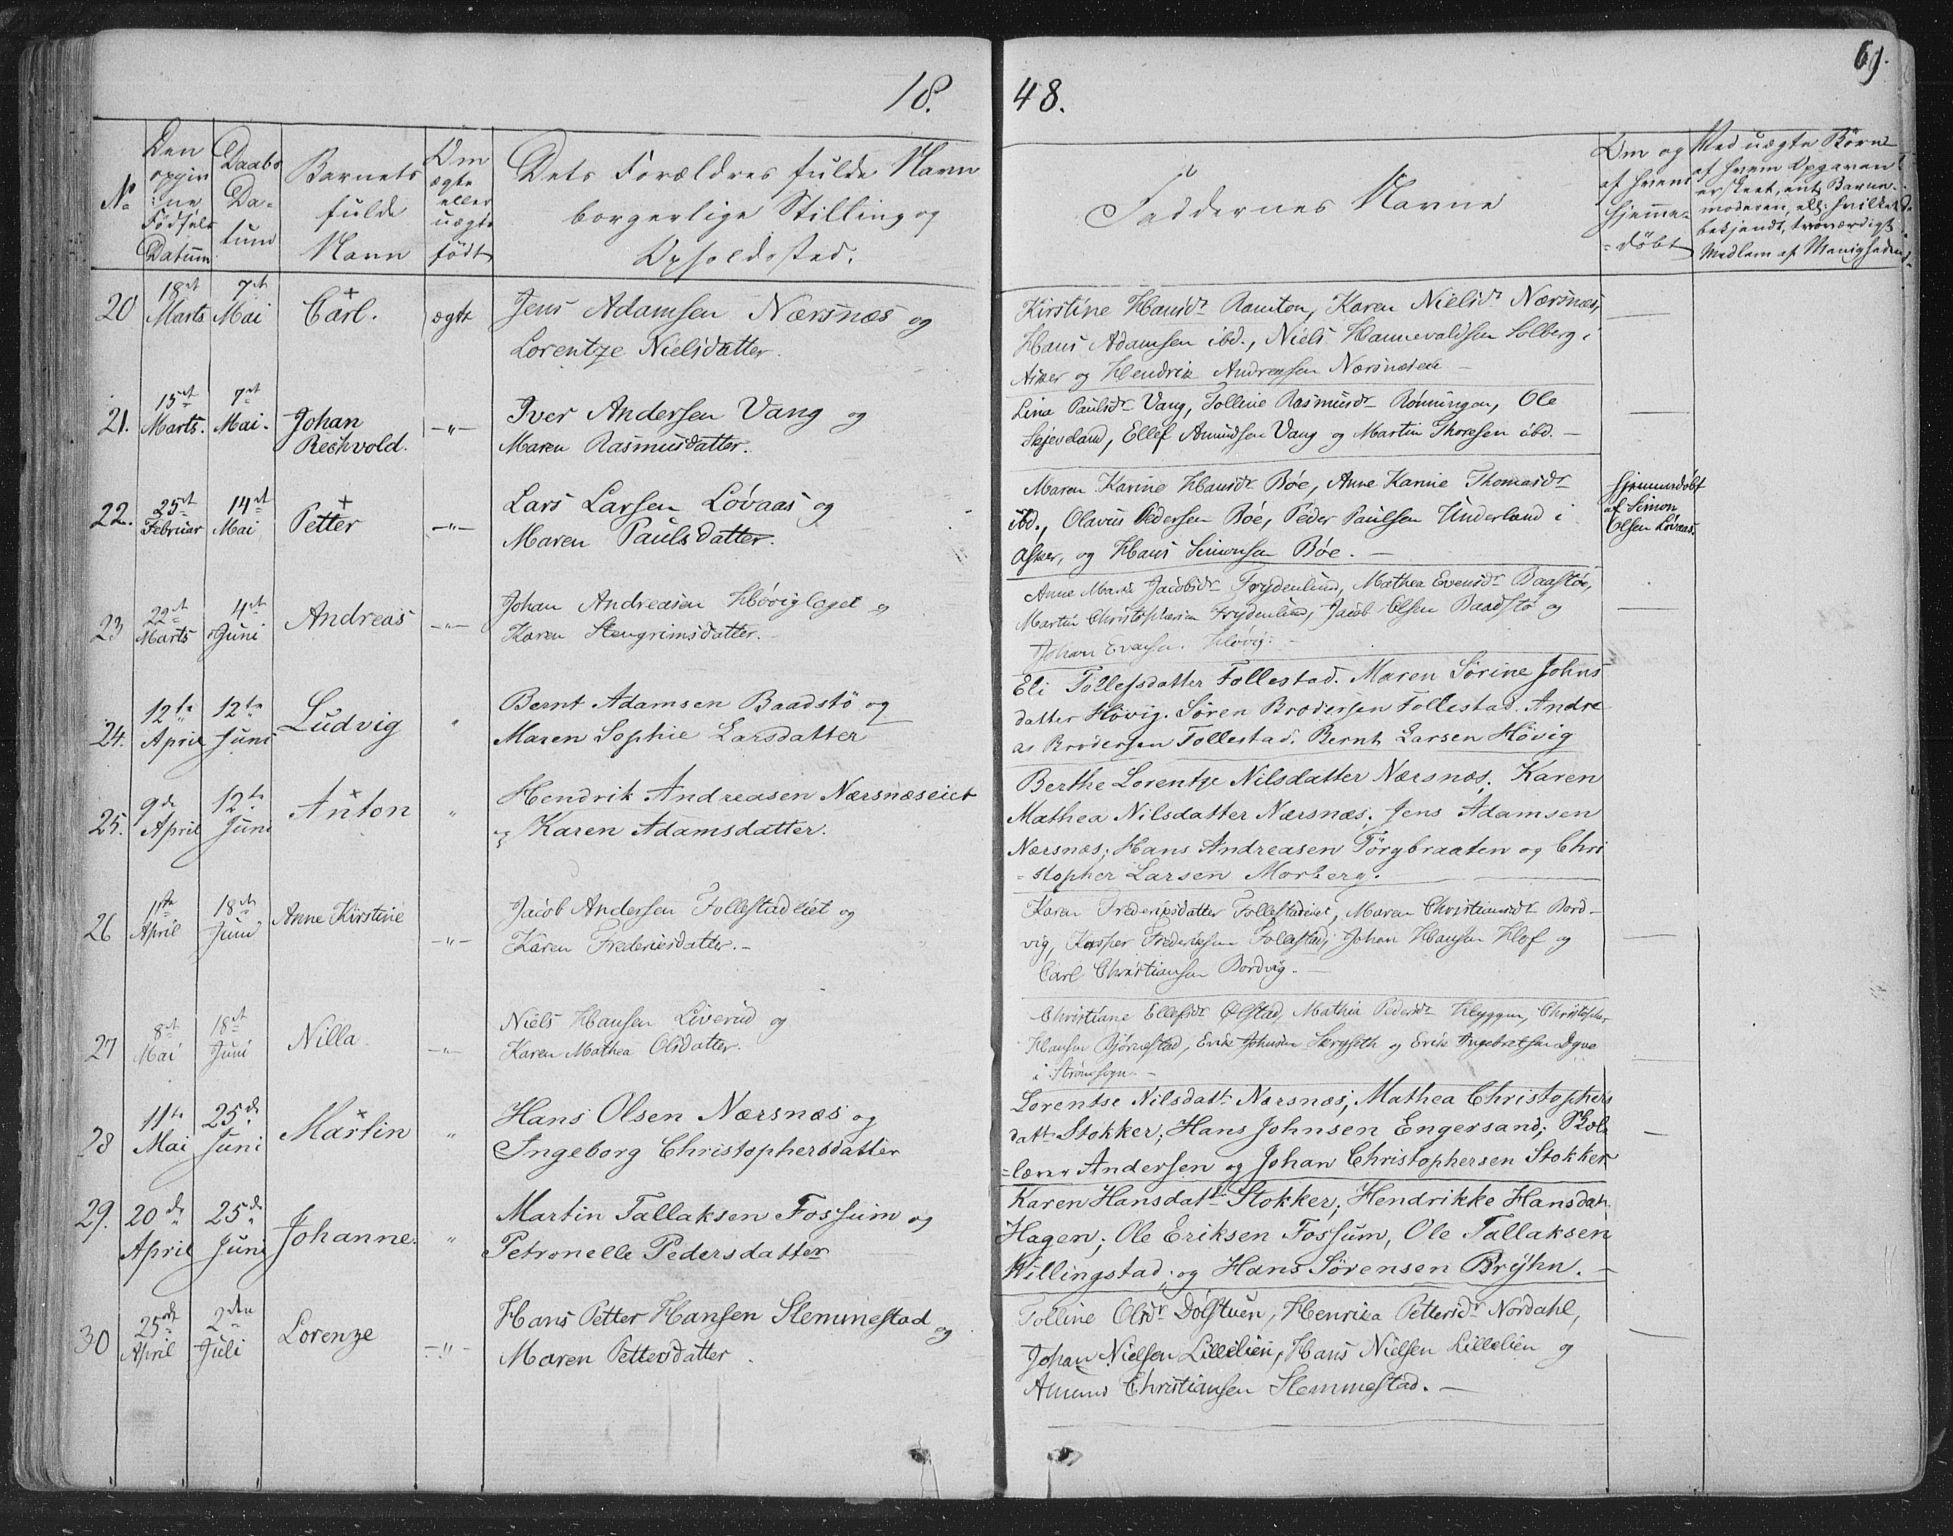 18.
48.
69.
No
Den opgivne Fødsels Datum
Daabs Datum
Barnets fulde Navn
Om ægte eller uægte født
Dets Forældres fulde Navn borgerlige Stilling og Opholdssted.
Faddernes Navne
Om og af hvem hjemmedøbt
Ved uægte Børn af hvem Opgaven er skeet, ent. Barnemoderen, ell. hvilket bekjendt, troværdigt Medlem af Menigheden
20 18et Marts 7et Mai Carl. ægte Jens Adamsen Nærsnæs og
Lorentze Nielsdatter.
Kirstine Hansdr Ramton, Karen Nielsdr Nærsnæs,
Hans Adamsen ibd., Niels Hannevaldsen Solberg i
Asker og Hendrik Andreasen Nærsnæseie —
21. 15et Marts. 7et Mai. Johan Rechvold. —"— Iver Andersen Vang og
Maren Rasmusdatter.
Line Paulsdr Vang, Tolline Rasmusdr Rønningen, Ole
Skjeveland, Ellef Amundsen Vang og Martin Thoresen ibd. —
22. 25et Februar 14et Mai Petter —"— Lars Larsen Løvaas og
Maren Paulsdatter.
Maren Karine Hansdr Bøe, Anne Karine Thomasdr
ibd., Olavus Pedersen Bøe, Peder Paulsen Underland i
Asker, og Hans Simonsen Bøe. —
Hjemmedøbt af Simon Olsen Løvaas.
23 22et Marts 4et Juni Andreas —"— Johan Andreasen Høviglaget og
Karen Stengrimsdatter.
Anne Marie Jacobsdr Frydenlund, Mathea Evensdr Baastøe,
Martin Christophersen Frydenlund, Jacob Olsen Baadstø og
Johan Evensen Høvig. —
24. 12te April 12te Juni Ludvig " Bernt Adamsen Baadstö og
Maren Sophie Larsdatter
Eli Tollefsdatter Follestad. Maren Sörine Johns
datter Hövig. Sören Brodersen Follestad. Andre
as Brodersen Follestad. Bernt Larsen Hövig
25. 9de April 12te Juni Anton " Hendrik Andreasen Nærsnæseiet
og Karen Adamsdatter.
Berthe Lorentze Nilsdatter Nærsnæs; Karen
Mathea Nilsdatter Nærsnæs; Jens Adamsen
Nærsnæs; Hans Andreasen Törgbraaten og Chri
=stopher Larsen Morberg.
26 1ste April 18de Juni Anne Kirstine —"— Jacob Andersen Follestadeiet og
Karen Frederiksdatter. —
Karen Frederiksdatter Follestadeiet, Maren Christiansdr Bord-
vig, Kasper Frederiksen Follestad, Johan Hansen Hof og
Carl Christiansen Bordvig. —
27 8et Mai 18et Juni Nilla. —"— Niels Hansen Liverud og
Karen Mathea Olsdatter.
Christiane Ellefsdr Ølstad, Mathie Pedersdr Hyggen, Christopher
Hansen Bjørnstad, Erik Johnsen Sægseth og Erik Ingebretsen Dyve
i Strømsogn. —
28 11te Mai 25de Juni Martin " Hans Olsen Nærsnæs og
Ingeborg Christophersdatter
Lorentse Nilsdattr Nærsnæs; Mathea Christophers
dattr Stokker; Hans Johnsen Engersand;
Andersen og Johan Christophersen Stokker
29. 20de April 25de Juni Johanne. " Martin Tallaksen Fossum og
Petronelle Pedersdatter
Karen Hansdattr Stokker; Hendrikke Hansdat
Hagen; Ole Eriksen Fossum, Ole Tallaksen
Willingstad; og Hans Sørensen Brÿhn. —
30 25de April 2den Juli Lorenze —"— Hans Petter Hansen Slemmestad og
Maren Pettersdatter.
Tolline Olsdr Dølstuen, Henrika Pettersdr Nordahl,
Johan Nielsen Lillelien, Hans Nielsen Lillelien og
Amund Christiansen Slemmestad. —